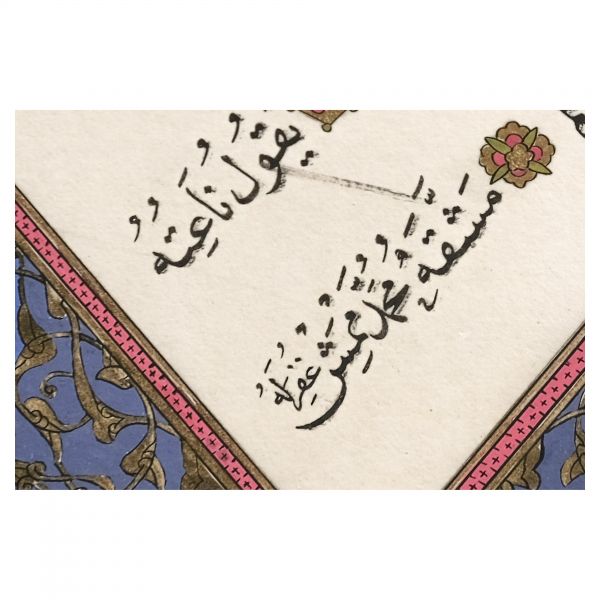 يقُولُ نَاعِتُهُ
مَشَقَهُ مُحَمَّد غُفِرَلَهُ